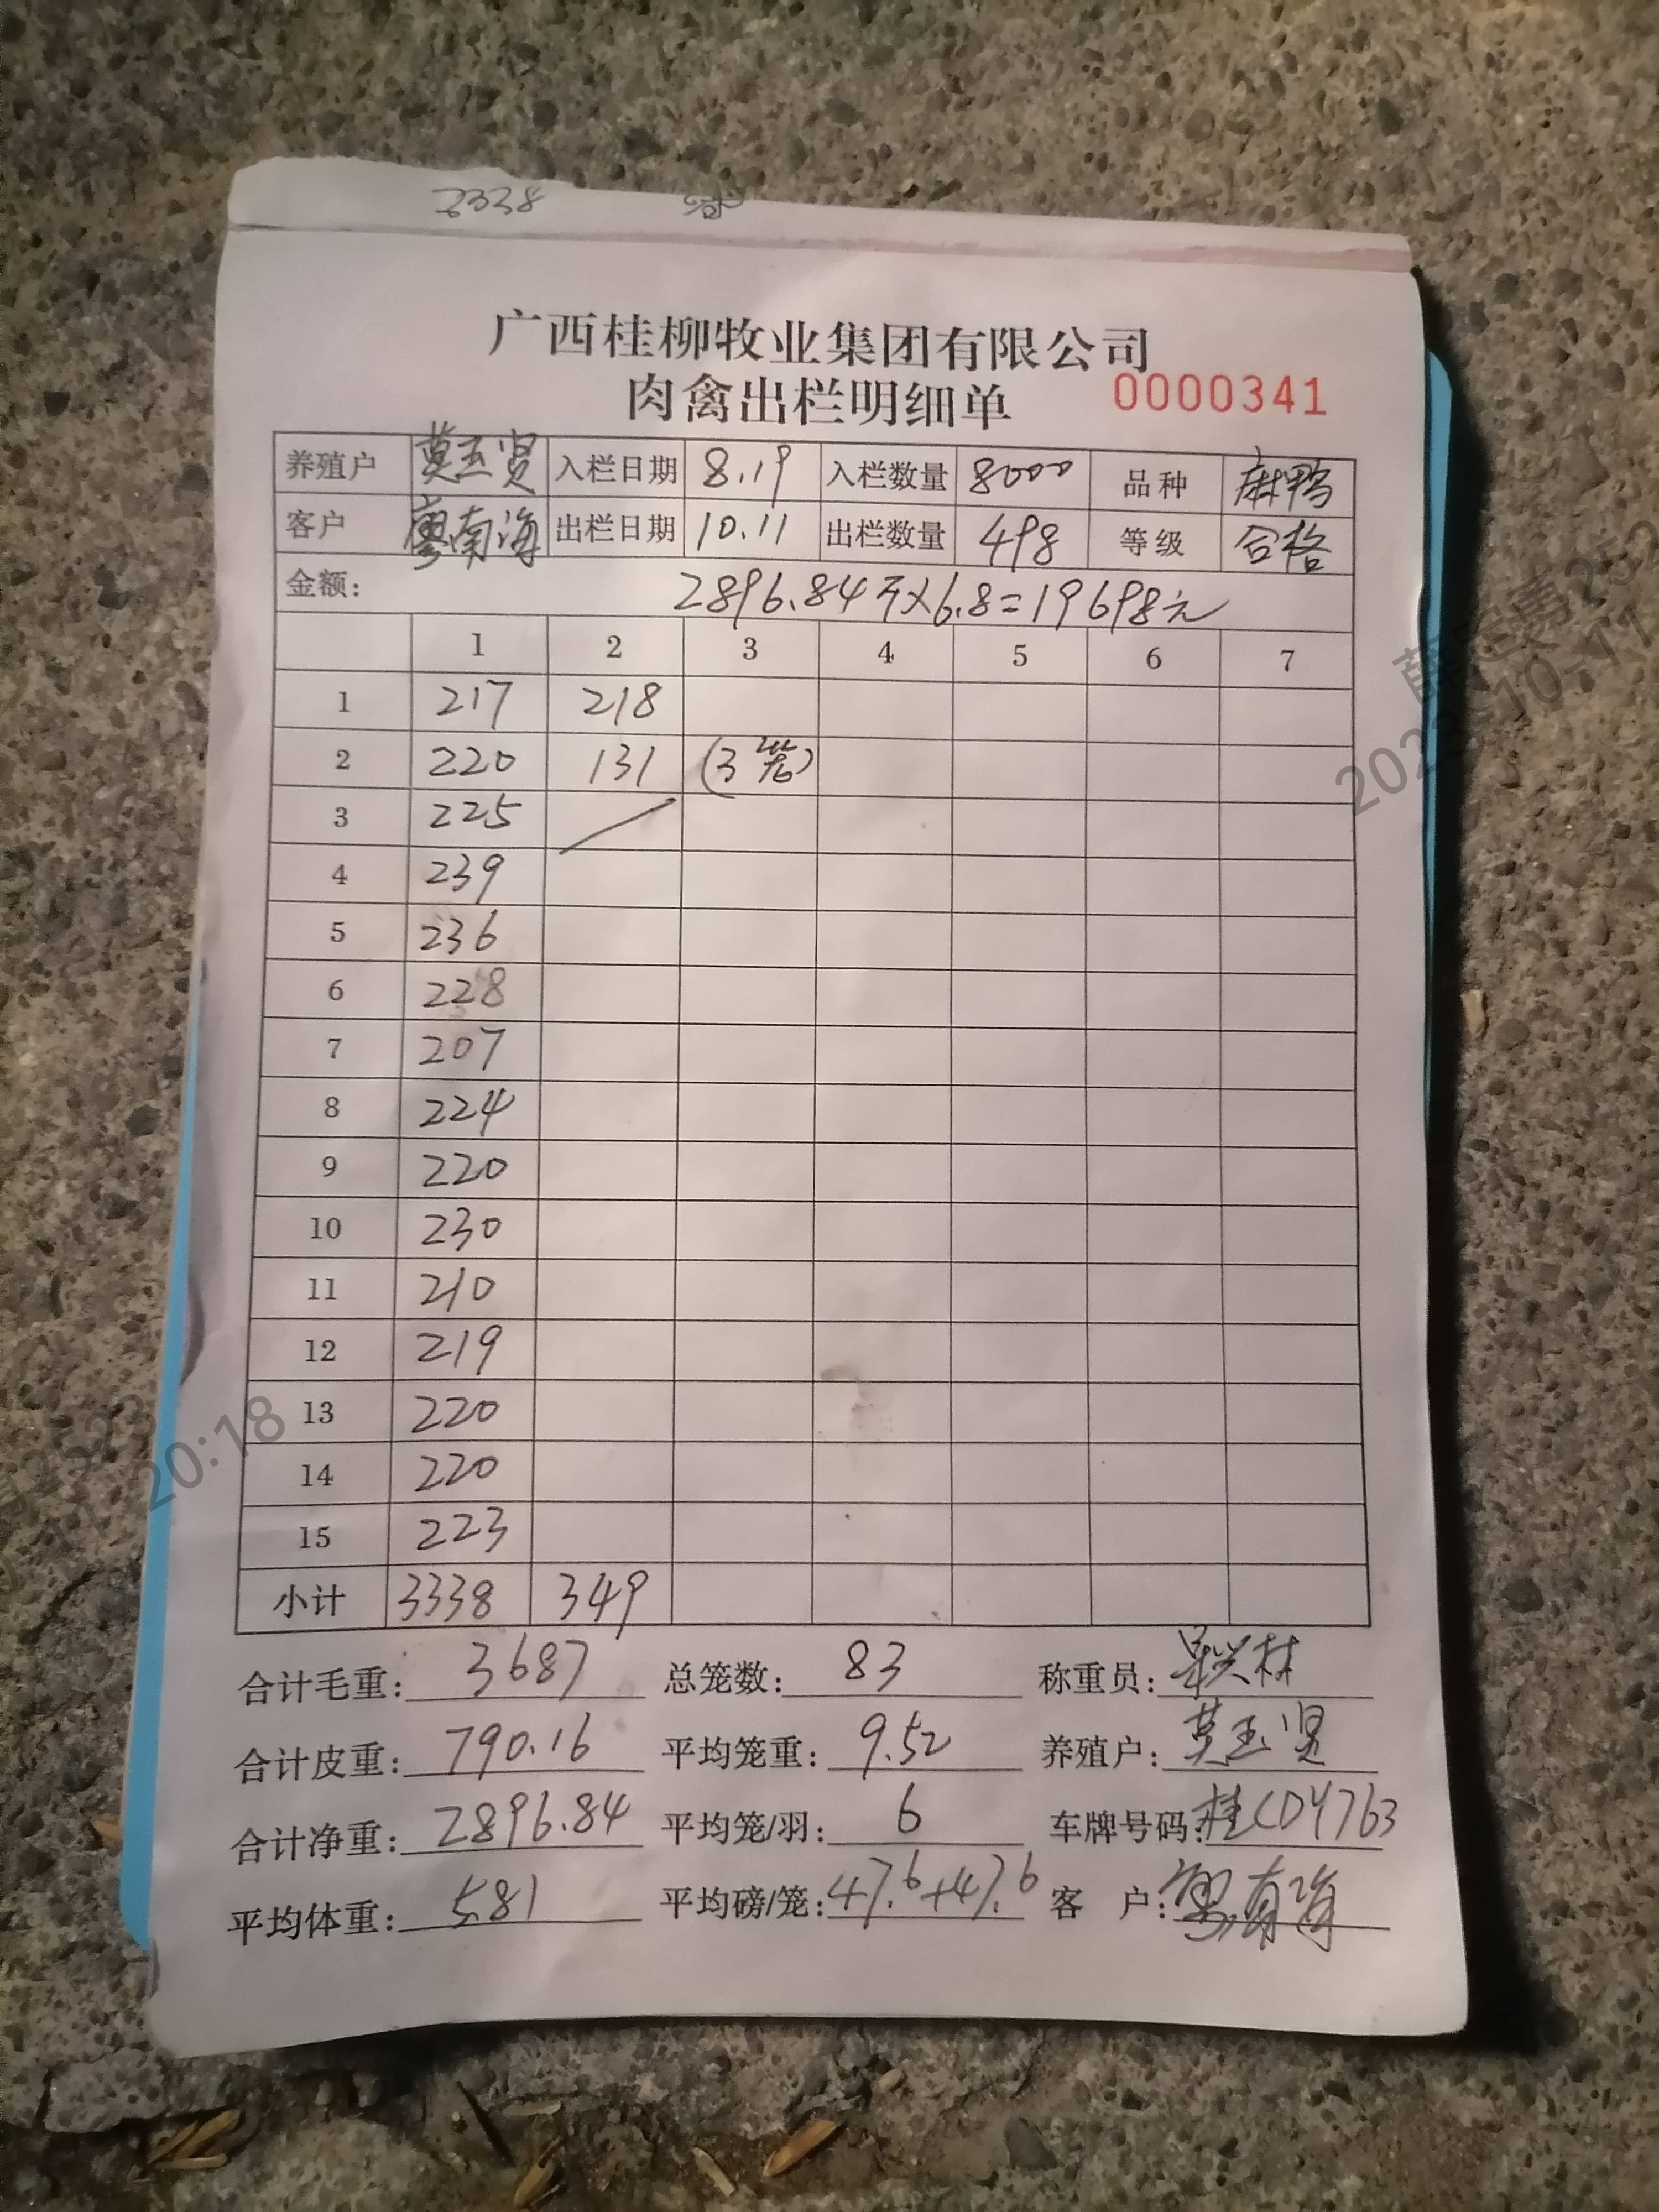 3338
广西桂柳牧业集团有限公司
肉禽出栏明细单 0000341
养殖户 莫玉贤 入栏日期 8.19 入栏数量 8000 品种 麻鸭
客户 廖南海 出栏日期 10.11 出栏数量 498 等级 合格
金额: 2896.84斤×6.8=19698元
1 2 3 4 5 6 7
1 217 218
2 220 131 (3笼)
3 225
4 239
5 236
6 228
7 207
8 224
9 220
10 230
11 210
12 219
13 220
14 220
15 223
小计 3338 349
合计毛重: 3687 总笼数: 83 称重员:
合计皮重: 790.16 平均笼重: 9.52 养殖户: 莫玉贤
合计净重: 2896.84 平均笼/羽: 6 车牌号码: 桂CDY763
平均体重: 5.81 平均磅/笼: 47.6+47.6 客户: 廖南海
20:18
10-11